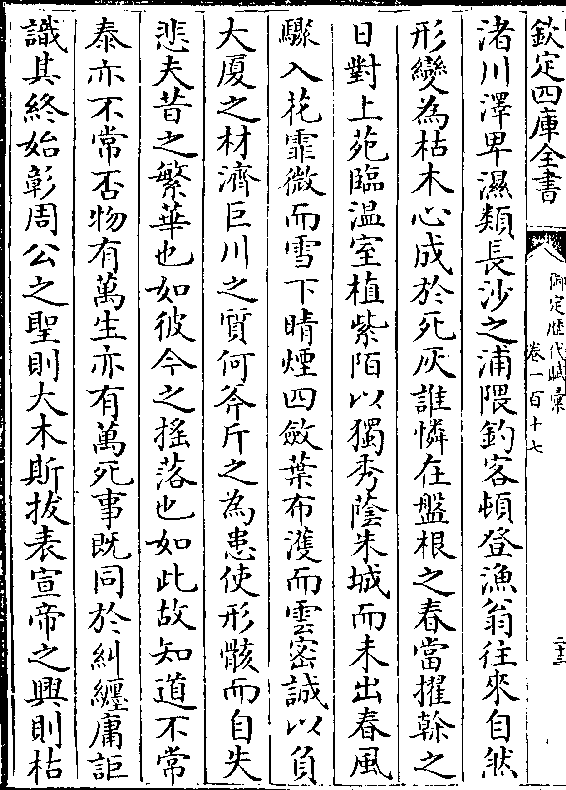 欽定四庫全書
御定歷代賦彙
卷一百十七
渚川澤卑濕類長沙之浦隈釣客頓登漁翁往來自然
形變為枯木心成於死灰誰憐在盤根之春當擢榦之
日對上苑臨温室植紫陌以獨秀蔭朱城而未出春風
驟入花霏微而雪下晴煙四斂葉布濩而雲密誠以負
大厦之材濟巨川之質何斧斤之為患使形骸而自失
悲夫昔之繁華也如彼今之揺落也如此故知道不常
泰亦不常否物有萬生亦有萬死事既同於糾纆庸詎
識其終始彰周公之聖則大木斯拔表宣帝之興則枯